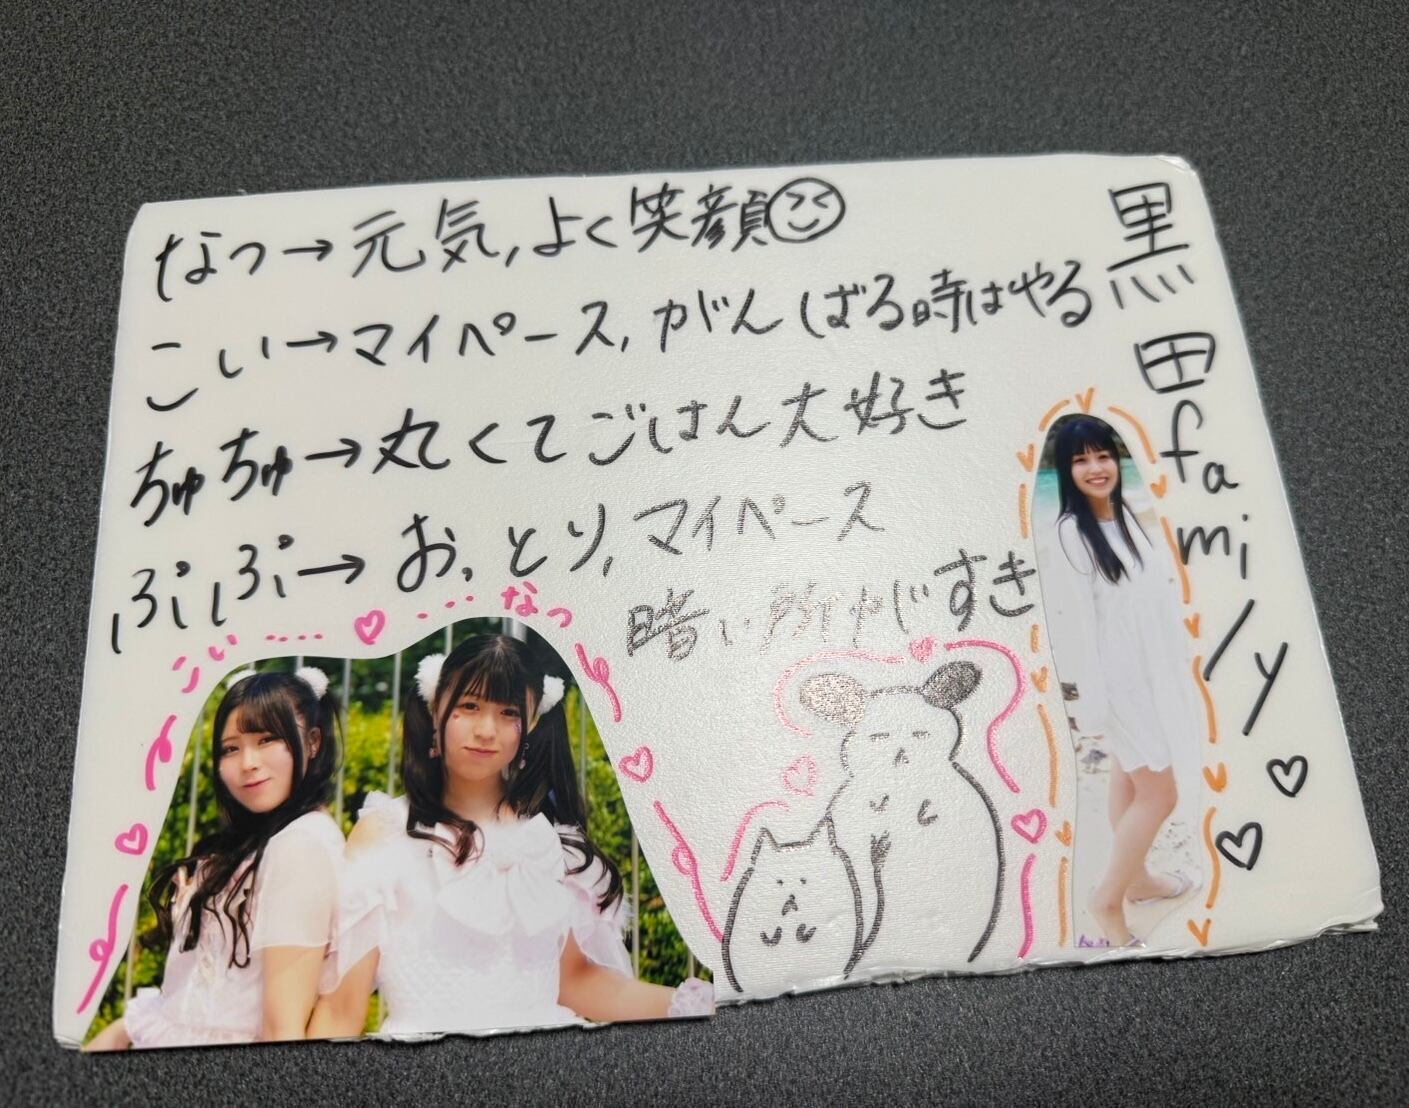 なつ→元気,よく笑顔
こい→マイペース,がんばる時はやる
ちゅちゅ→丸くてごはん大好き
ぷぷ→おっとり,マイペース
暗い所がすき
黒田family
こい……♡……なつ